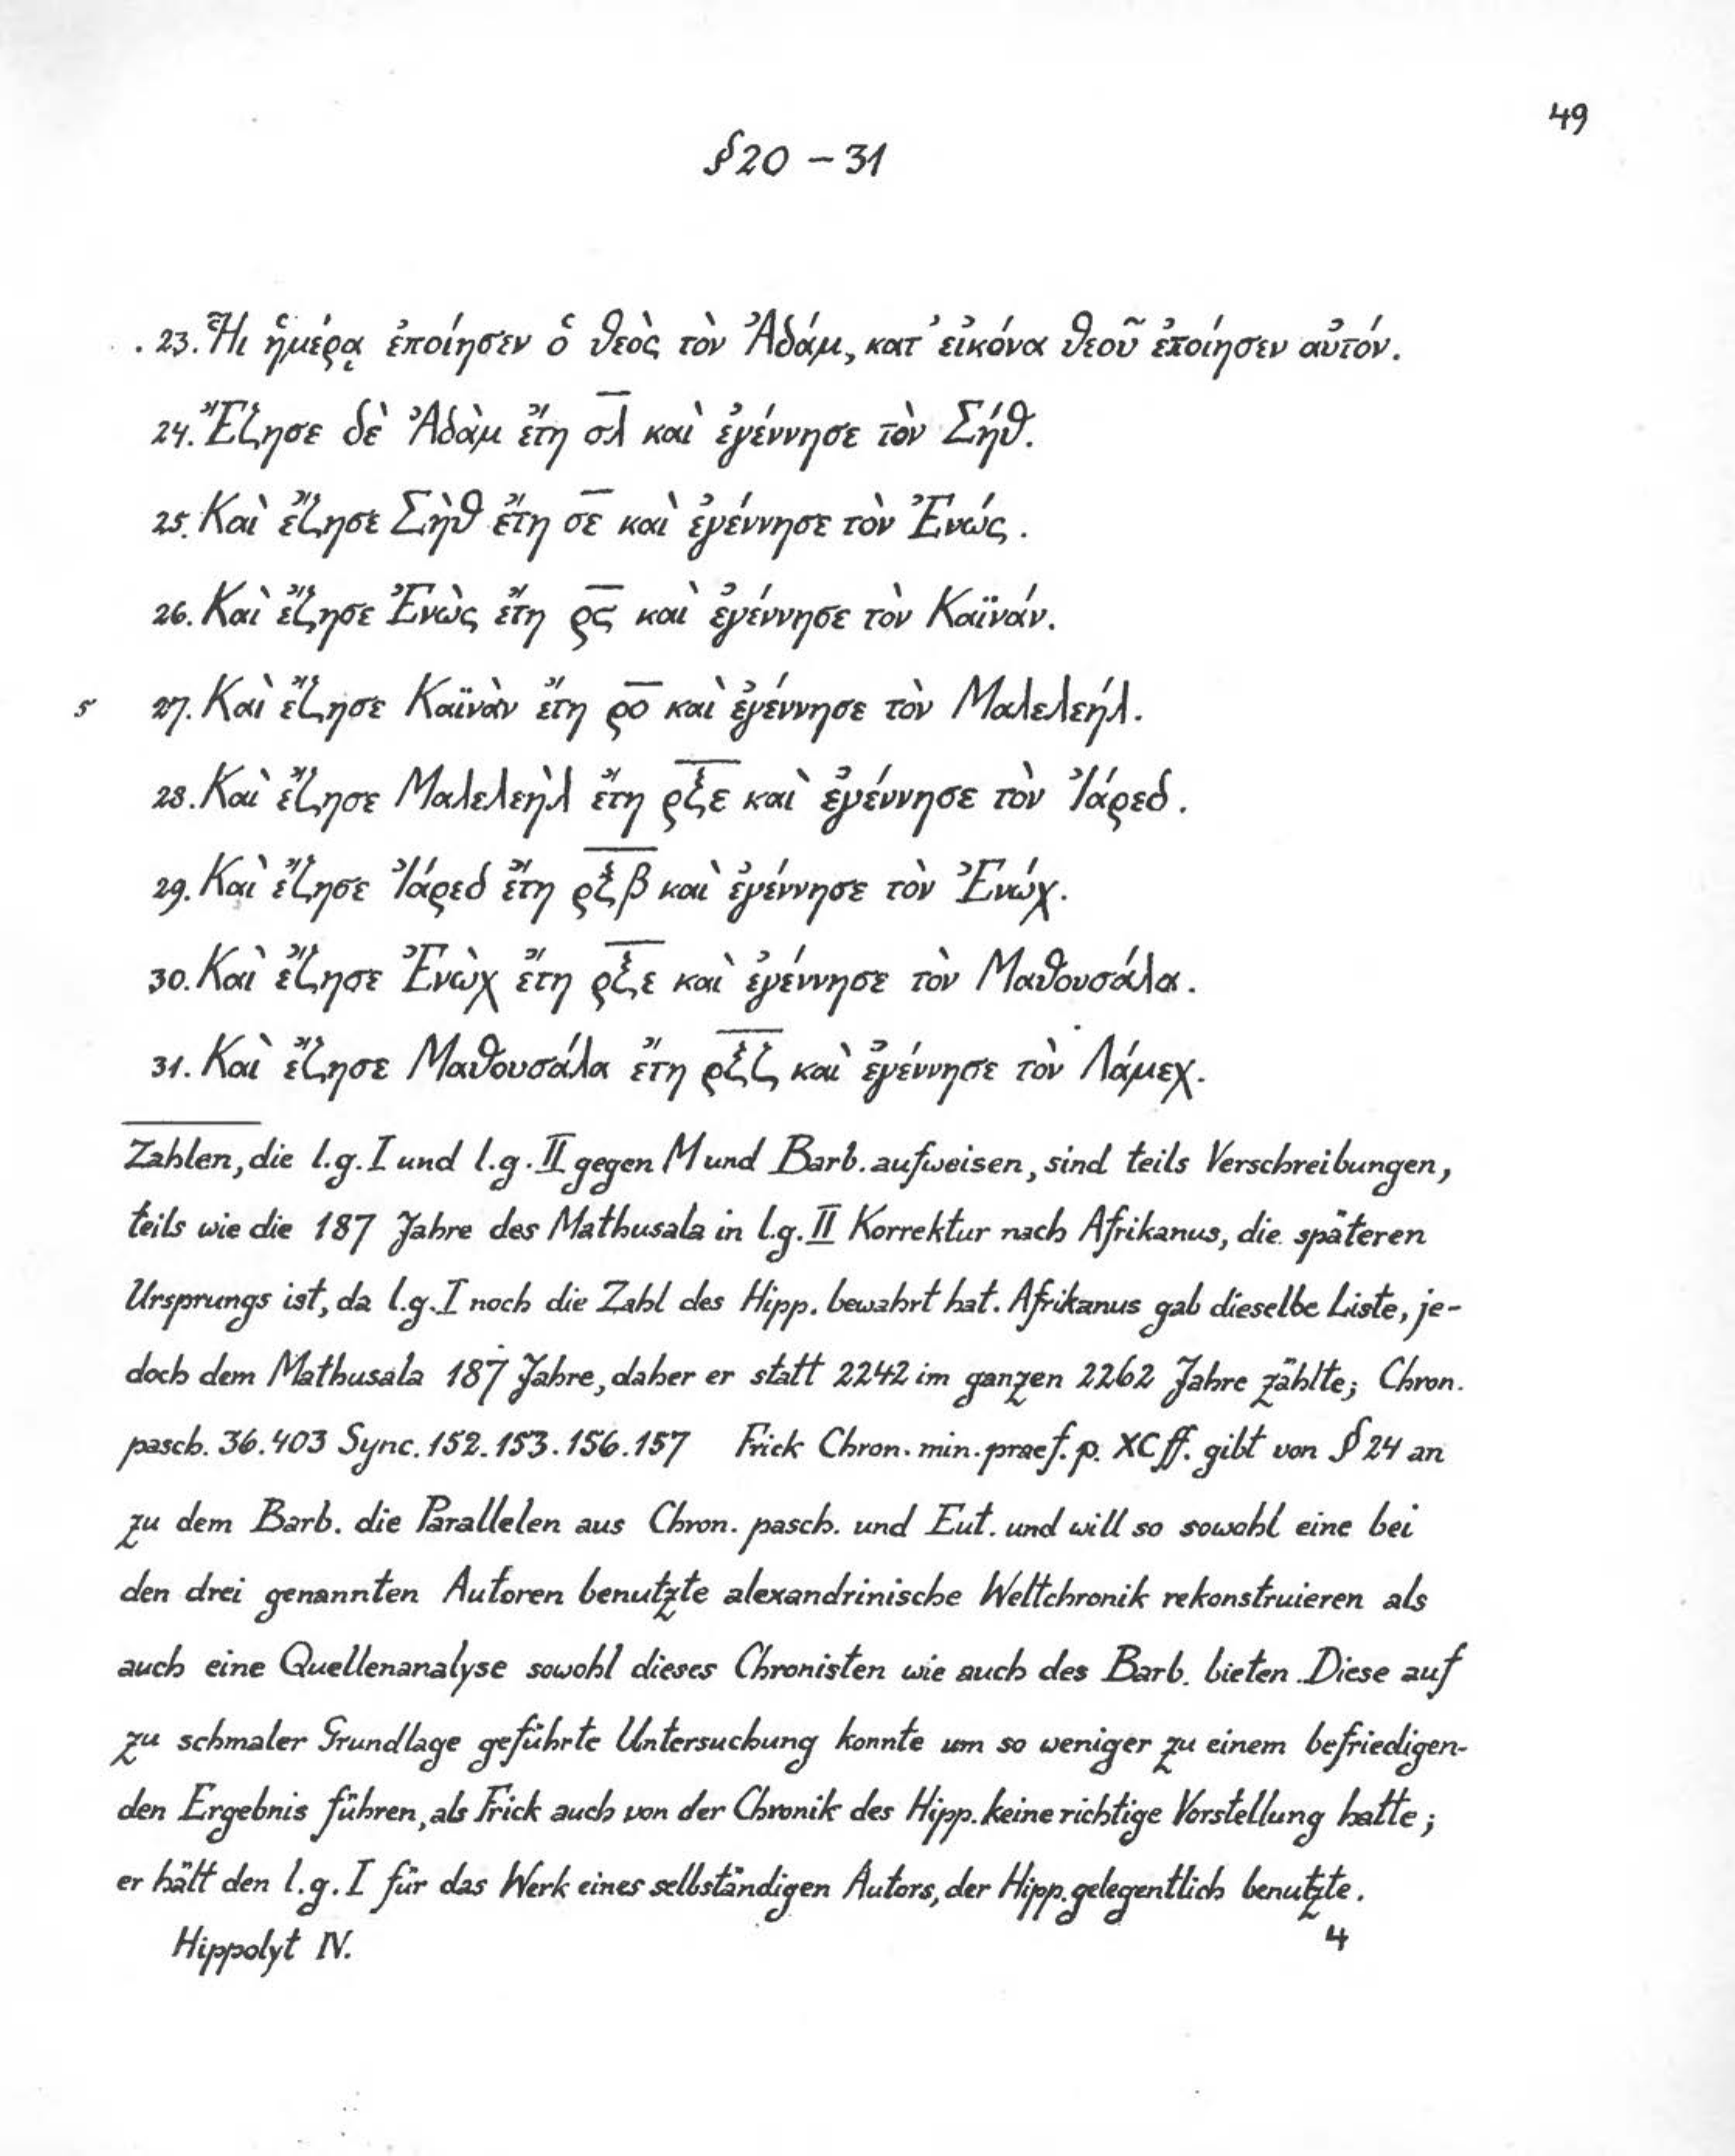 49
§20 – 31
23. Ἧι ἡμέρᾳ ἐποίησεν ὁ θεὸς τὸν Ἀδάμ, κατ' εἰκόνα θεοῦ ἐποίησεν αὐτόν.
24. Ἔζησε δὲ Ἀδὰμ ἔτη σ̅λ̅ καὶ ἐγέννησε τὸν Σήθ.
25. Καὶ ἔζησε Σὴθ ἔτη σ̅ε̅ καὶ ἐγέννησε τὸν Ἐνώς.
26. Καὶ ἔζησε Ἐνὼς ἔτη ρ̅ϛ̅ καὶ ἐγέννησε τὸν Καϊνάν.
5 27. Καὶ ἔζησε Καϊνὰν ἔτη ρ̅ο̅ καὶ ἐγέννησε τὸν Μαλελεήλ.
28. Καὶ ἔζησε Μαλελεὴλ ἔτη ρ̅ξ̅ε̅ καὶ ἐγέννησε τὸν Ἰάρεδ.
29. Καὶ ἔζησε Ἰάρεδ ἔτη ρ̅ξ̅β̅ καὶ ἐγέννησε τὸν Ἐνώχ.
30. Καὶ ἔζησε Ἐνὼχ ἔτη ρ̅ξ̅ε̅ καὶ ἐγέννησε τὸν Μαθουσάλα.
31. Καὶ ἔζησε Μαθουσάλα ἔτη ρ̅ξ̅ζ̅ καὶ ἐγέννησε τὸν Λάμεχ.
Zahlen, die l.g. I und l.g. II gegen M und Barb. aufweisen, sind teils Verschreibungen,
teils wie die 187 Jahre des Mathusala in l.g. II Korrektur nach Afrikanus, die späteren
Ursprungs ist, da l.g. I noch die Zahl des Hipp. bewahrt hat. Afrikanus gab dieselbe Liste, je-
doch dem Mathusala 187 Jahre, daher er statt 2242 im ganzen 2262 Jahre zählte; Chron.
pasch. 36.403 Sync. 152.153.156.157 Frick Chron. min. praef. p. XC ff. gibt von § 24 an
zu dem Barb. die Parallelen aus Chron. pasch. und Eut. und will so sowohl eine bei
den drei genannten Autoren benutzte alexandrinische Weltchronik rekonstruieren als
auch eine Quellenanalyse sowohl dieses Chronisten wie auch des Barb. bieten. Diese auf
zu schmaler Grundlage geführte Untersuchung konnte um so weniger zu einem befriedigen-
den Ergebnis führen, als Frick auch von der Chronik des Hipp. keine richtige Vorstellung hatte;
er hält den l.g. I für das Werk eines selbständigen Autors, der Hipp. gelegentlich benutzte.
Hippolyt IV. 4